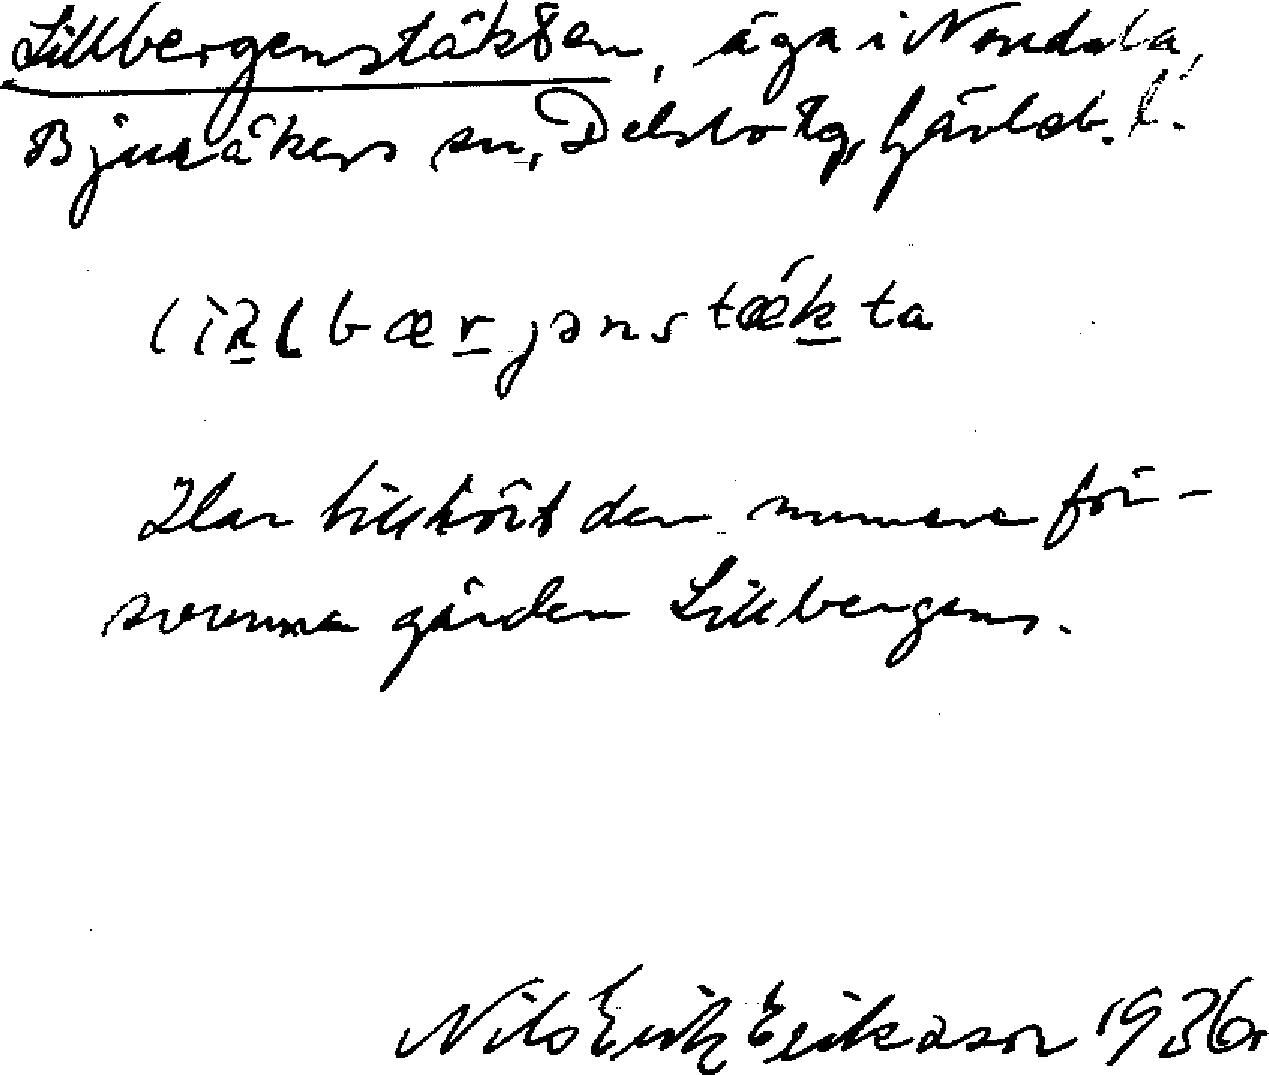 Lillbergenstäkten, äga i Nordala,
Bjuråkers sn, Delsbo tg, Gävleb. l.
lìllbærjənstækta
Har tillhört den numera för-
svunna gården Lillbergens.
Nils Erik Eriksson 1936